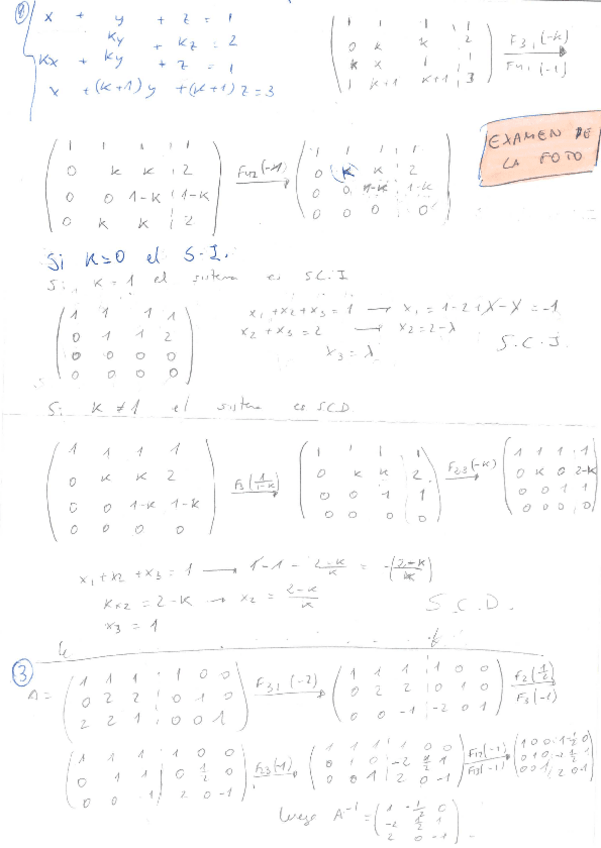 ④ x + y + z = 1
ky + kz = 2
kx + ky + z = 1
x + (k+1)y + (k+1)z = 3
1 1 1 1
0 k k 2
k k 1 1
1 k+1 k+1 3
F31(-k)
F41(-1)
EXAMEN DE
LA FOTO
1 1 1 1
0 k k 2
0 0 1-k 1-k
0 k k 2
F42(-1)
1 1 1 1
0 k k 2
0 0 1-k 1-k
0 0 0 0
Si k=0 el S.I.
Si k=1 el sistema es SC.I
1 1 1 1
0 1 1 2
0 0 0 0
0 0 0 0
x1+x2+x3=1 → x1=1-2+λ-λ=-1
x2+x3=2 → x2=2-λ
x3=λ
S.C.I.
Si k≠1 el sistema es SCD.
1 1 1 1
0 k k 2
0 0 1-k 1-k
0 0 0 0
F3(1/1-k)
1 1 1 1
0 k k 2
0 0 1 1
0 0 0 0
F23(-k)
1 1 1 1
0 k 0 2-k
0 0 1 1
0 0 0 0
x1+x2+x3=1 → 1-1-2-k/k = -(2-k/k)
kx2=2-k → x2=2-k/k
x3=1
S.C.D.
③
A=
1 1 1 1 0 0
0 2 2 0 1 0
2 2 1 0 0 1
F31(-2)
1 1 1 1 0 0
0 2 2 0 1 0
0 0 -1 -2 0 1
F2(1/2)
F3(-1)
1 1 1 1 0 0
0 1 1 0 1/2 0
0 0 1 2 0 -1
F23(-1)
1 1 1 1 0 0
0 1 0 -2 1/2 1
0 0 1 2 0 -1
F12(-1)
F13(-1)
1 0 0 1 -1/2 0
0 1 0 -2 1/2 1
0 0 1 2 0 -1
luego A⁻¹=
1 -1/2 0
-2 1/2 1
2 0 -1